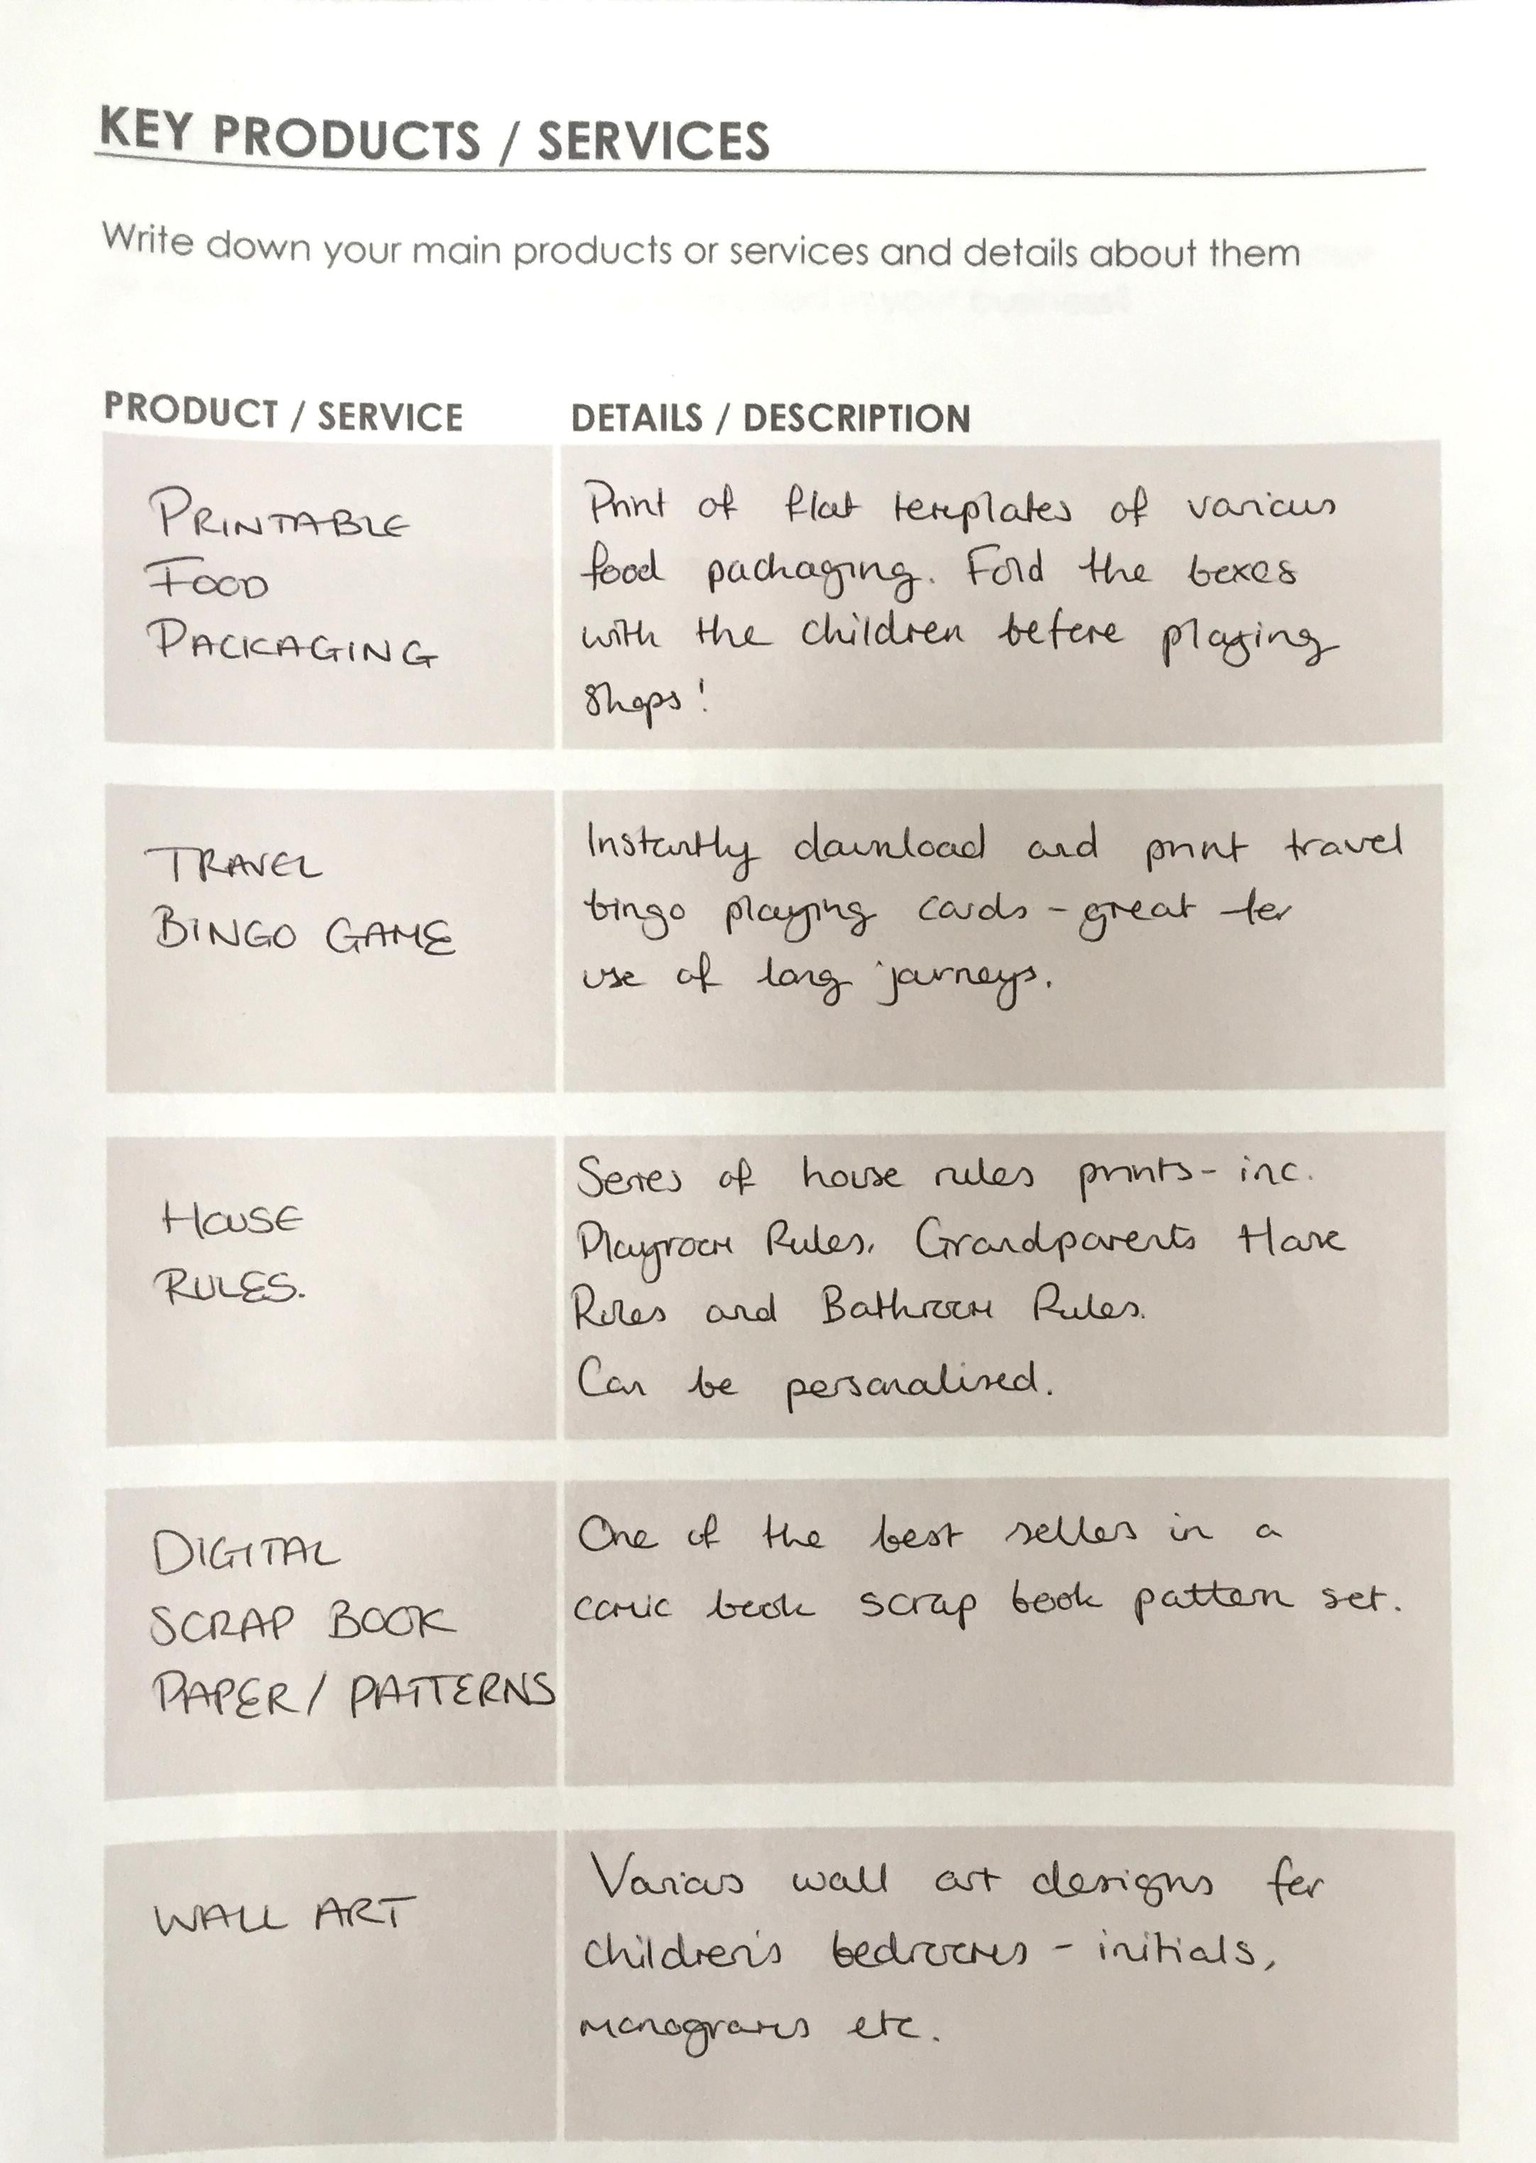 KEY PRODUCTS / SERVICES
Write down your main products or services and details about them
PRODUCT / SERVICE
DETAILS / DESCRIPTION
PRINTABLE
FOOD
PACKAGING
Print of flat templates of various
food packaging. Fold the boxes
with the children before playing
shops!
TRAVEL
BINGO GAME
Instantly download and print travel
bingo playing cards - great for
use of long journeys.
HOUSE
RULES.
Series of house rules prints - inc.
Playroom Rules, Grandparents House
Rules and Bathroom Rules.
Can be personalised.
DIGITAL
SCRAP BOOK
PAPER / PATTERNS
One of the best selles in a
comic book scrap book pattern set.
WALL ART
Various wall art designs for
children's bedrooms - initials,
monograms etc.